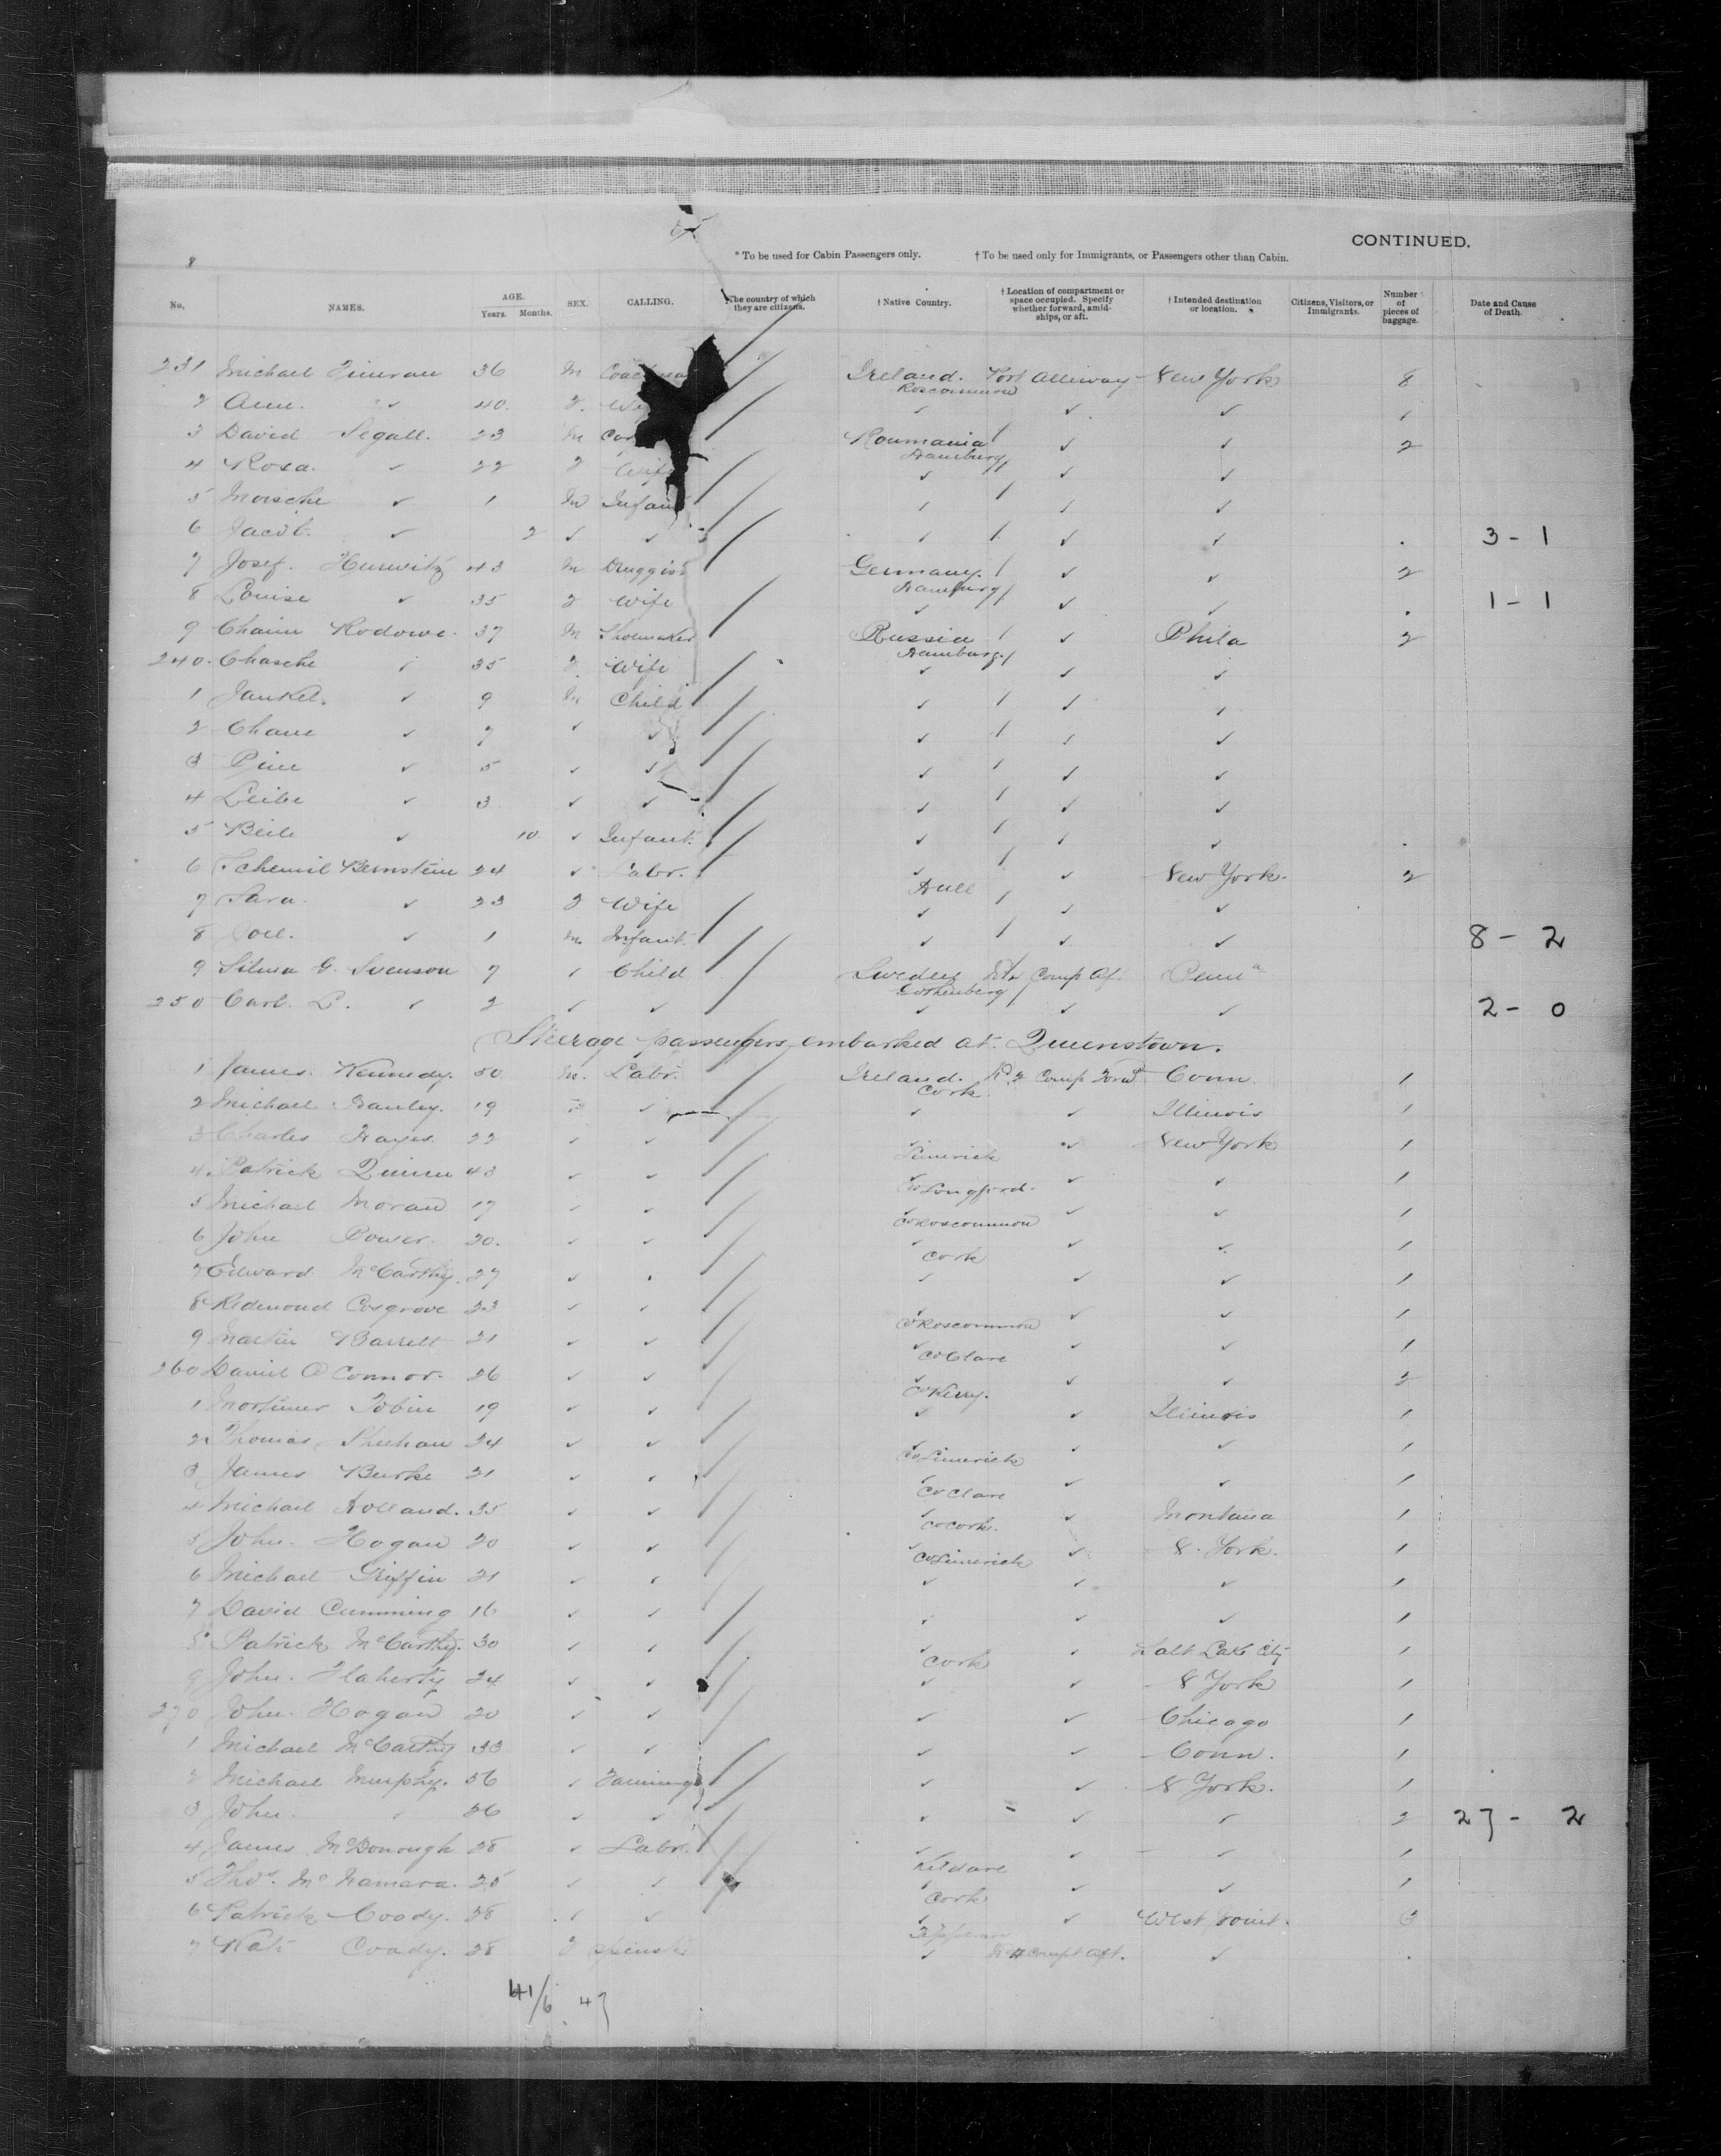 CONTINUED.
* To be used for Cabin Passengers only. † To be used only for Immigrants, or Passengers other than Cabin.
No. NAMES. AGE. Years. Months. SEX. CALLING. *The country of which they are citizens. † Native Country. † Location of compartment or space occupied. Specify whether forward, amidships, or aft. † Intended destination or location. Citizens, Visitors, or Immigrants. Number of pieces of baggage. Date and Cause of Death.
231 Michael 36 M Ireland. Roscommon Port Alleiway New York 8
2 Ann. ✓ 40. F. ✓ ✓ ✓ 1
3 David Segall. 23 M Roumania Hamburg ✓ ✓ 2
4 Rosa. ✓ 22 F Wife ✓ ✓ ✓
5 Moische ✓ 1 M Infant ✓ ✓ ✓
6 Jacob. ✓ 2 ✓ ✓ ✓ ✓ ✓ 3 - 1
7 Josef. Hurwitz 43 M Druggist Germany. Hamburg ✓ ✓ 2
8 Louise ✓ 35 F Wife ✓ ✓ ✓ 1 - 1
9 Chaim Rodowe. 37 M Shoemaker Russia Hamburg. ✓ Phila 2
240. Chasche ✓ 35 F. Wife ✓ ✓ ✓
1 Jankel. ✓ 9 M Child ✓ ✓ ✓
2 Chane ✓ 7 ✓ ✓ ✓ ✓ ✓
3 ✓ 5 ✓ ✓ ✓ ✓ ✓
4 Leibe ✓ 3 ✓ ✓ ✓ ✓ ✓
5 Beile ✓ 10. ✓ Infant. ✓ ✓ ✓
6 Schemil Bernstein 24 ✓ Labr. ✓ Hull ✓ New York. 2
7 Sara. ✓ 23 F Wife ✓ ✓ ✓
8 ✓ 1 M. Infant. ✓ ✓ ✓ 8 - 2
9 Silma G. Svenson 7 ✓ Child Sweden Gothenberg Comp Af. Penn
250 Carl. ✓ 2 ✓ ✓ ✓ ✓ ✓ 2 - 0
Steerage passengers embarked at Queenstown.
1 James. Kennedy. 50 M. Labr. Ireland. Cork No 2 Comp Forwd Conn. 1
2 Michael 19 ✓ ✓ ✓ Illinois 1
3 Charles Hayes 22 ✓ ✓ ✓ Limerick ✓ New York 1
4 Patrick Quinn 43 ✓ ✓ Co Longford. ✓ ✓ 1
5 Michael Moran 17 ✓ ✓ ✓ Co Roscommon ✓ ✓ 1
6 John Power. 20. ✓ ✓ ✓ Cork ✓ ✓ 1
7 Edward McCarthy. 27 ✓ ✓ ✓ ✓ 1
8 Redmond Cosgrove 23 ✓ ✓ Co Roscommon ✓ ✓ 1
9 Martin Barrett 21 ✓ ✓ ✓ Co Clare ✓ ✓ 1
260 Daniel O Connor. 26 ✓ ✓ ✓ Co Kerry. ✓ ✓ 2
1 Mortimer Tobin 19 ✓ ✓ ✓ ✓ Illinois 1
2 Thomas Sheehan 24 ✓ ✓ ✓ Co Limerick ✓ ✓ 1
3 James Burke 21 ✓ ✓ ✓ Co Clare ✓ ✓ 1
4 Michael Holland. 35 ✓ ✓ ✓ Co Cork. ✓ Montana 1
5 John. Hogan 20 ✓ ✓ ✓ Co Limerick ✓ N. York. 1
6 Michael Griffin 21 ✓ ✓ ✓ ✓ ✓ 1
7 David Cumming 16 ✓ ✓ ✓ ✓ ✓ 1
8 Patrick McCarthy. 30 ✓ ✓ ✓ Cork ✓ Salt Lake City 1
9 John. Flaherty 24 ✓ ✓ ✓ ✓ N York 1
270 John. Hogan 20 ✓ ✓ ✓ ✓ Chicago 1
1 Michael McCarthy 33 ✓ ✓ ✓ ✓ Conn. 1
2 Michael Murphy. 56 ✓ Farming ✓ ✓ N York. 1
3 John. ✓ 26 ✓ ✓ ✓ ✓ ✓ 2 27 - 2
4 James McDonough 28 ✓ Labr. ✓ Kildare ✓ ✓ 1
5 Thos. McNamara. 25 ✓ ✓ ✓ Cork ✓ ✓ 1
6 Patrick Coady. 28 ✓ ✓ ✓ ✓ West Point. 3
7 Kate Coady. 28 F Spinster ✓ Compt Aft. ✓
41/6 47